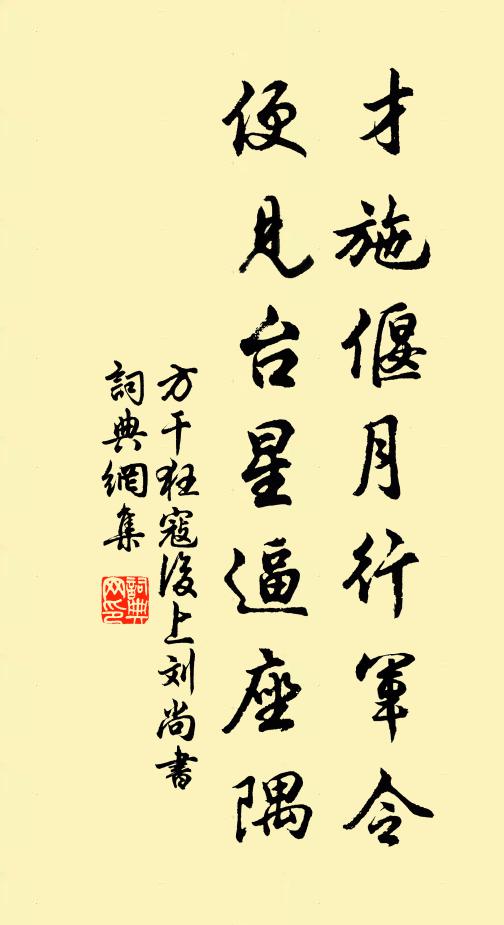 才施偃月行軍令
便見台星逼座隅
方干狂寇後上刘尚書
詞典網集
詞典網印